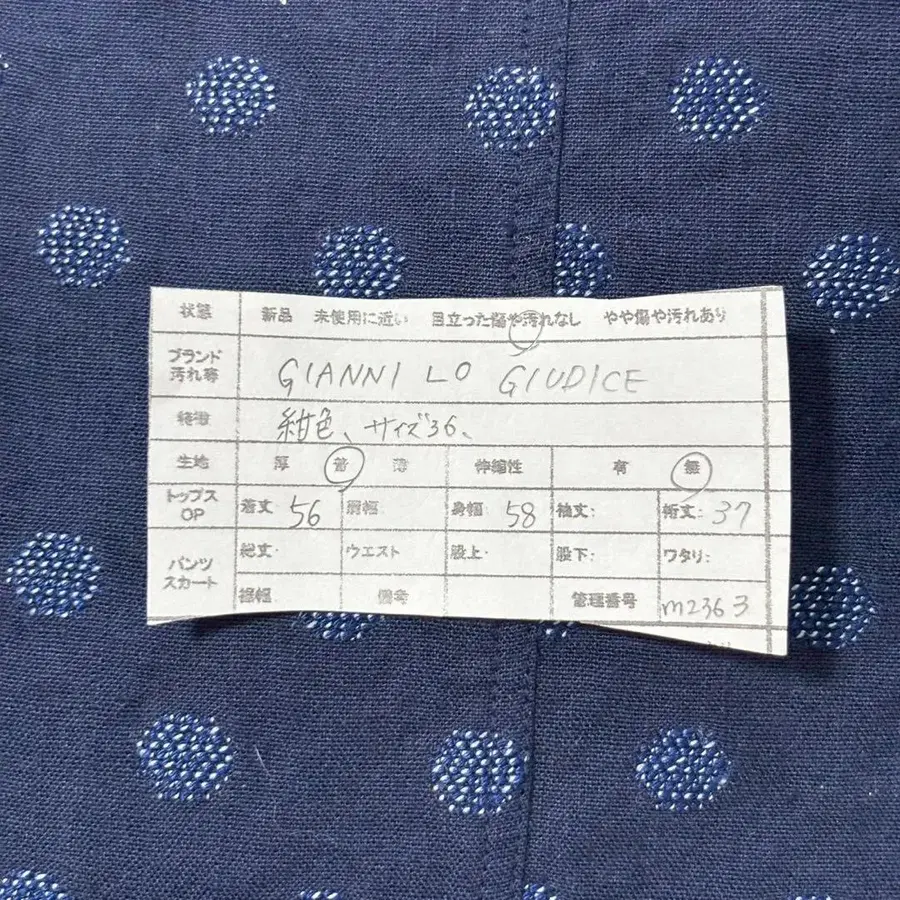 状態 新品 未使用に近い 目立った傷や汚れなし やや傷や汚れあり
ブランド
汚れ等 GIANNI LO GIUDICE
特徴 紺色、サイズ36、
生地 厚 普 薄 伸縮性 有 無
トップス
OP 着丈 56 肩幅 身幅 58 袖丈: 裄丈: 37
パンツ
スカート 総丈 ウエスト 股上 股下: ワタリ:
裾幅 備考 管理番号 m2363